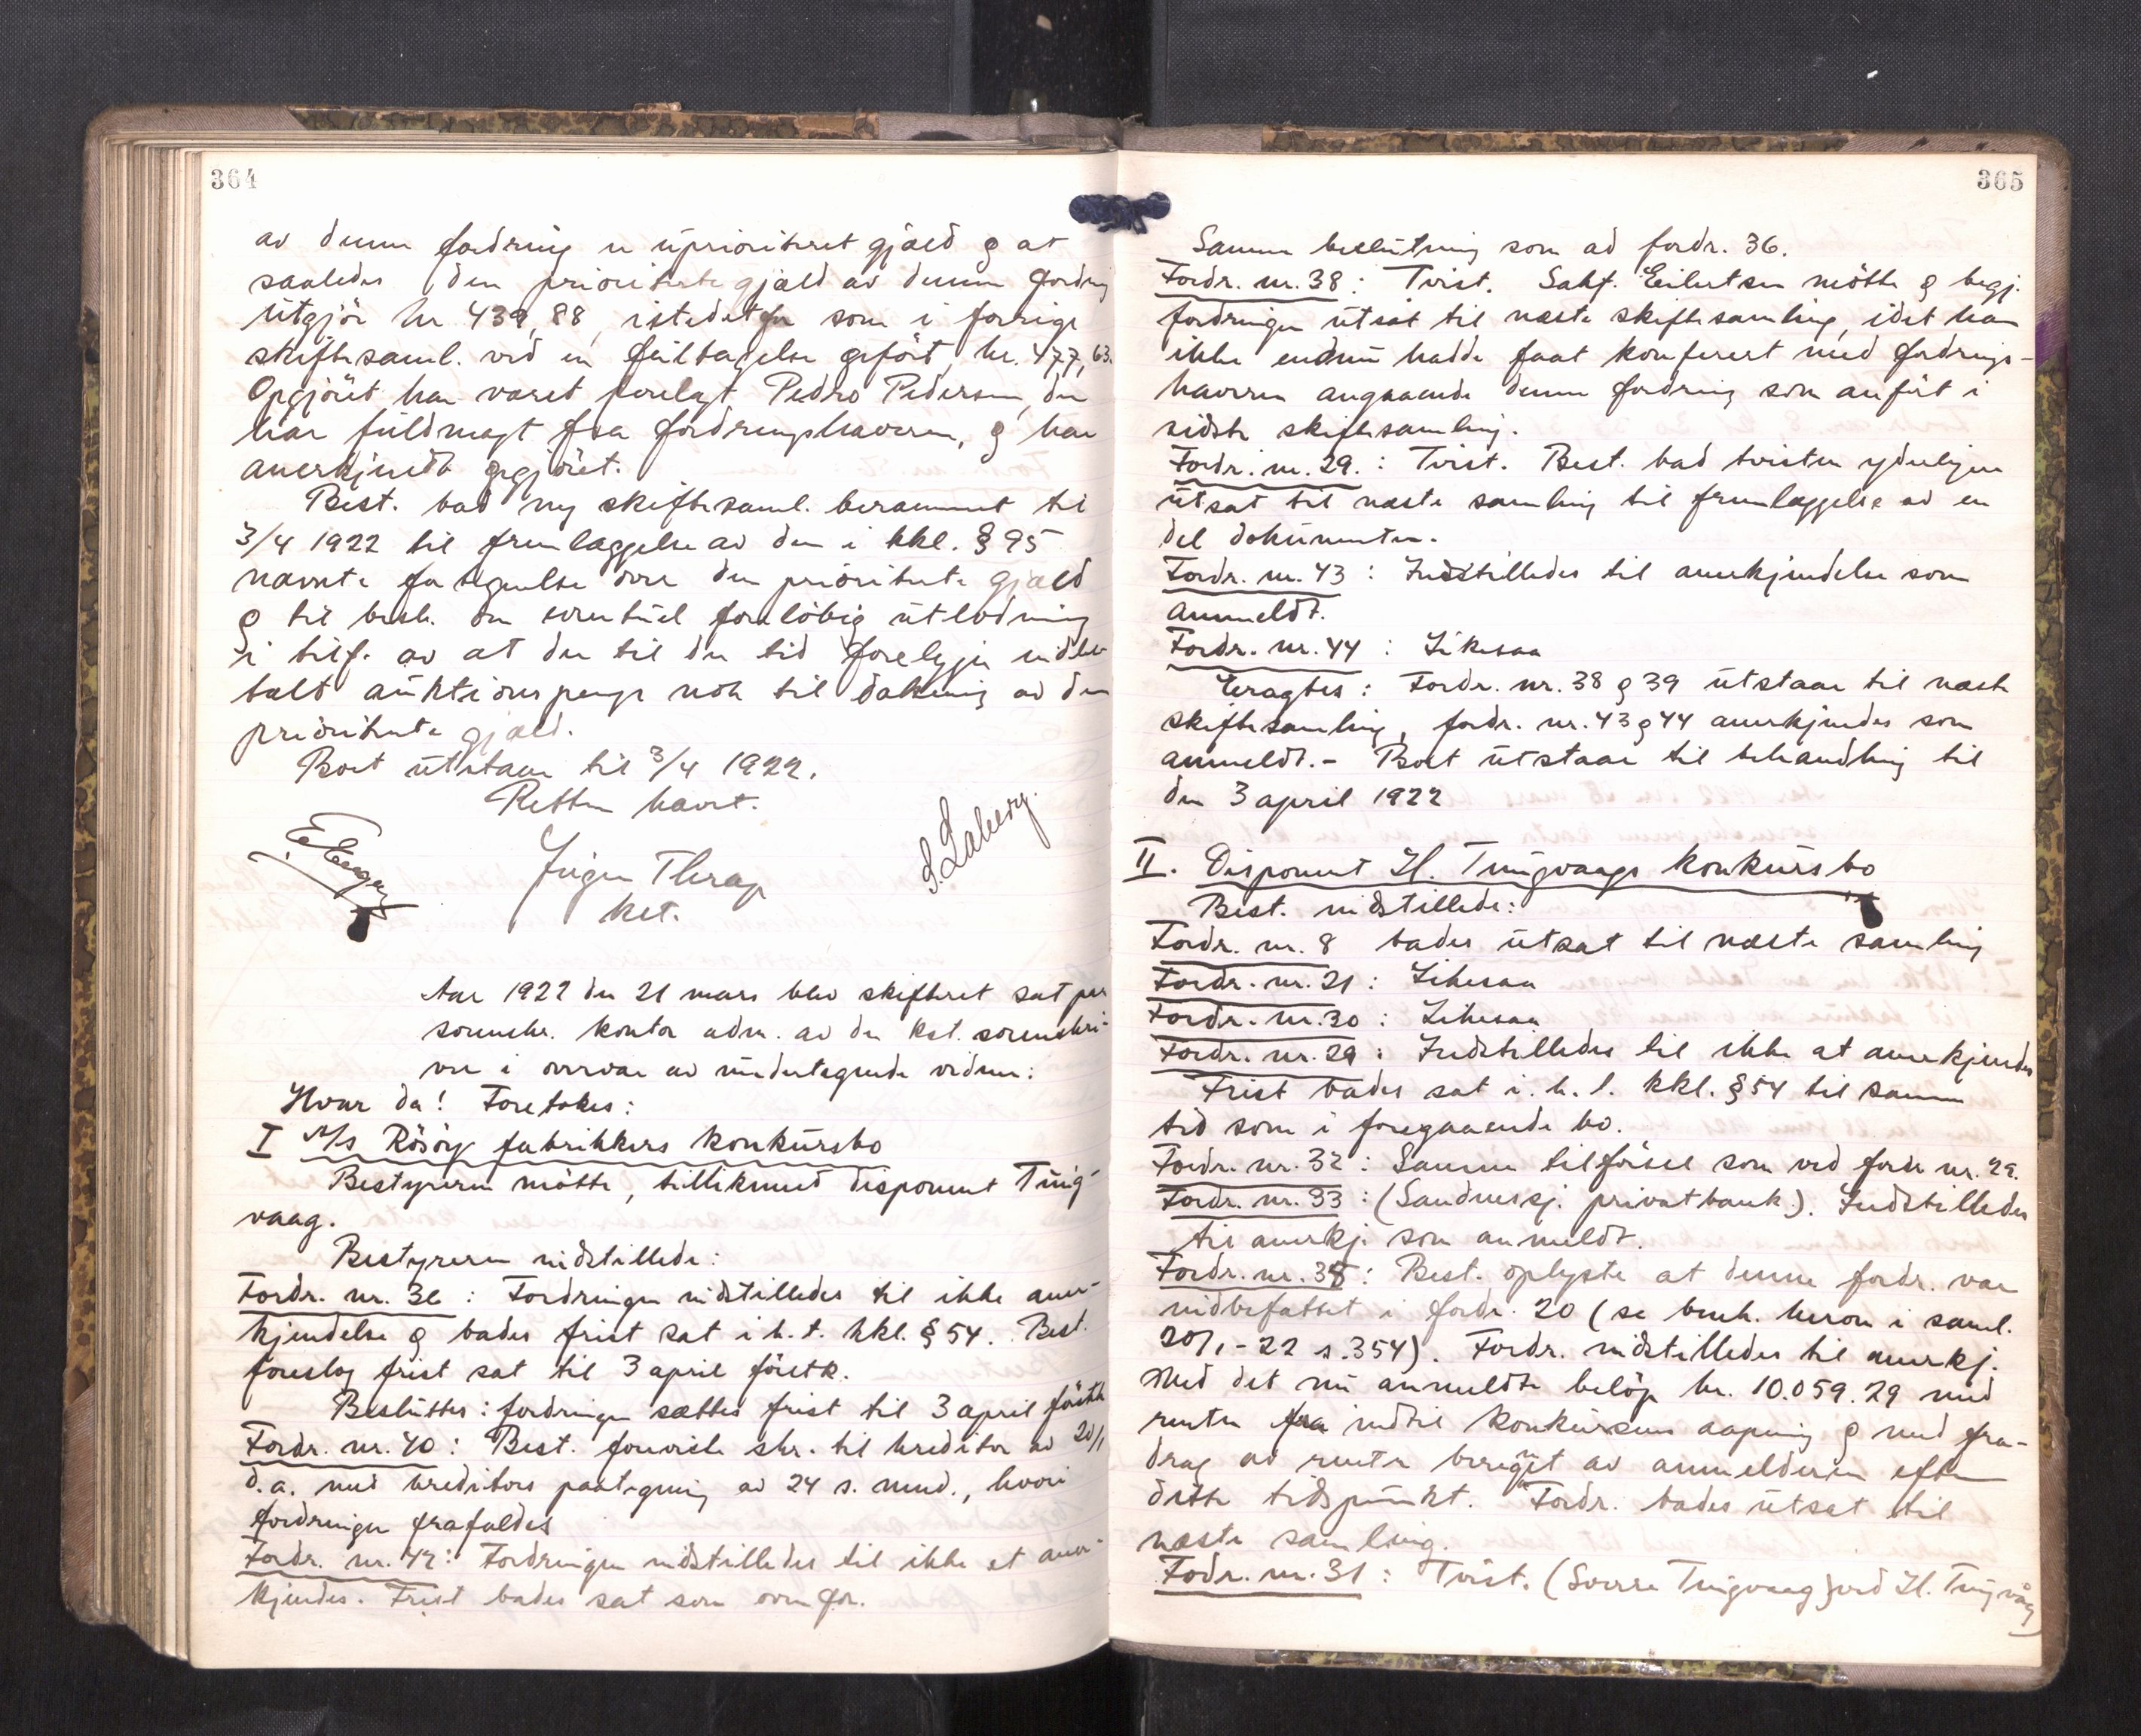 364
av denne fordring er uprioriteret gjæld & at
saaledes den prioriterte gjæld av denne fordring
utgjör kr 439,88, istedetfor som i forrige
skiftesaml. ved en feiltagelse opfört, kr. 477,63.
Opgjöret har været forelagt Pedro Pedersen, der
har fuldmagt fra fordringshaveren, & har
anerkjendt opgjöret.
Best. bad ny skiftesaml. berammet til
3/4 1922 til fremlæggelse av den i kkl. § 95
nævnte fortegnelse over den prioriterte gjæld
& til besl. om eventuel foreløbig utlodning
i tilf. av at der til den tid foreligger indbe-
talt auktionspenge nok til dækning av den
prioriterte gjæld.
Boet utstaar til 3/4 1922.
Retten hævet.
Jörgen Therap
kst.
S. Laberg.
Aar 1922 den 21 mars blev skifteret sat paa
sorenskr. kontor adm. av den kst. sorenskri-
ver i overvær av undertegnede vidner:
Hvor da! Foretokes:
I A/s Rösök fabrikkers konkursbo
Bestyreren mötte, tillikemed disponent Ting-
vaag.
Bestyreren indstillede:
Fordr. nr. 36 : Fordringen indstilledes til ikke aner-
kjendelse & bades frist sat i h. t. kkl. § 54. Best.
foreslog frist sat til 3 april förstk.
Besluttes: fordringen sættes frist til 3 april förstk
Fordr. nr. 40 : Best. foreviste skr. til kreditor av 20/1
d.a. med kreditors paategning av 24 s. mnd., hvori
fordringen frafaldes
Fordr. nr. 42 : Fordringen indstilledes til ikke at aner-
kjendes. Frist bades sat som ovenfor.
365
Samme beslutning som ad fordr. 36.
Fordr. nr. 38 : Tvist. Sakf. Eilertsen mötte & begj.
fordringen utsat til næste skiftesamling, idet han
ikke endnu hadde faat konferert med fordrings-
haveren angaaende denne fordring som anfört i
sidste skiftesamling.
Fordr. nr. 29. : Tvist. Best. bad tvisten yderligere
utsat til næste samling til fremlæggelse av en
del dokumenter.
Fordr. nr. 43 : Indstilledes til anerkjendelse som
anmeldt.
Fordr. nr. 44 : Likesaa
Eragtes : Fordr. nr. 38 & 39 utstaar til næste
skiftesamling, fordr. nr. 43 & 44 anerkjendes som
anmeldt. - Boet utstaar til behandling til
den 3 april 1922
II. Disponent H. Tingvaags konkursbo
Best. indstillede:
Fordr. nr. 8 bades utsat til næste samling
Fordr. nr. 21 : Likesaa
Fordr. nr. 30 : Likesaa
Fordr. nr. 29 : Indstilledes til ikke at anerkjendes
Frist bades sat i. h. t. kkl. § 54 til samme
tid som i foregaaende bo.
Fordr. nr. 32 : Samme tilförsel som ved fordr nr. 29.
Fordr. nr. 33 : (Søndmøskj. privatbank). Indstilledes
til anerkj. som anmeldt.
Fordr. nr. 35 : Best. oplyste at denne fordr. var
indbefattet i fordr. 20 (se bemk. herom i saml.
20/1 - 22 s. 354). Fordr. indstilledes til anerkj.
med det nu anmeldte belöp kr. 10.059.29 med
renter fra indtil konkursens aapning & med fra-
drag av renter beregnet av anmelderen efter
dette tidspunkt. Fordr. bades utsat til
næste samling.
Fodr. nr. 31 : Tvist. (Sverre Tingvaag) ved H. Tingvåg)